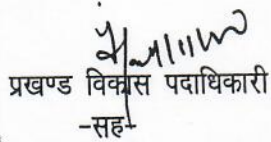 प्रखण्ड विकास पदाधिकारी
-सह-